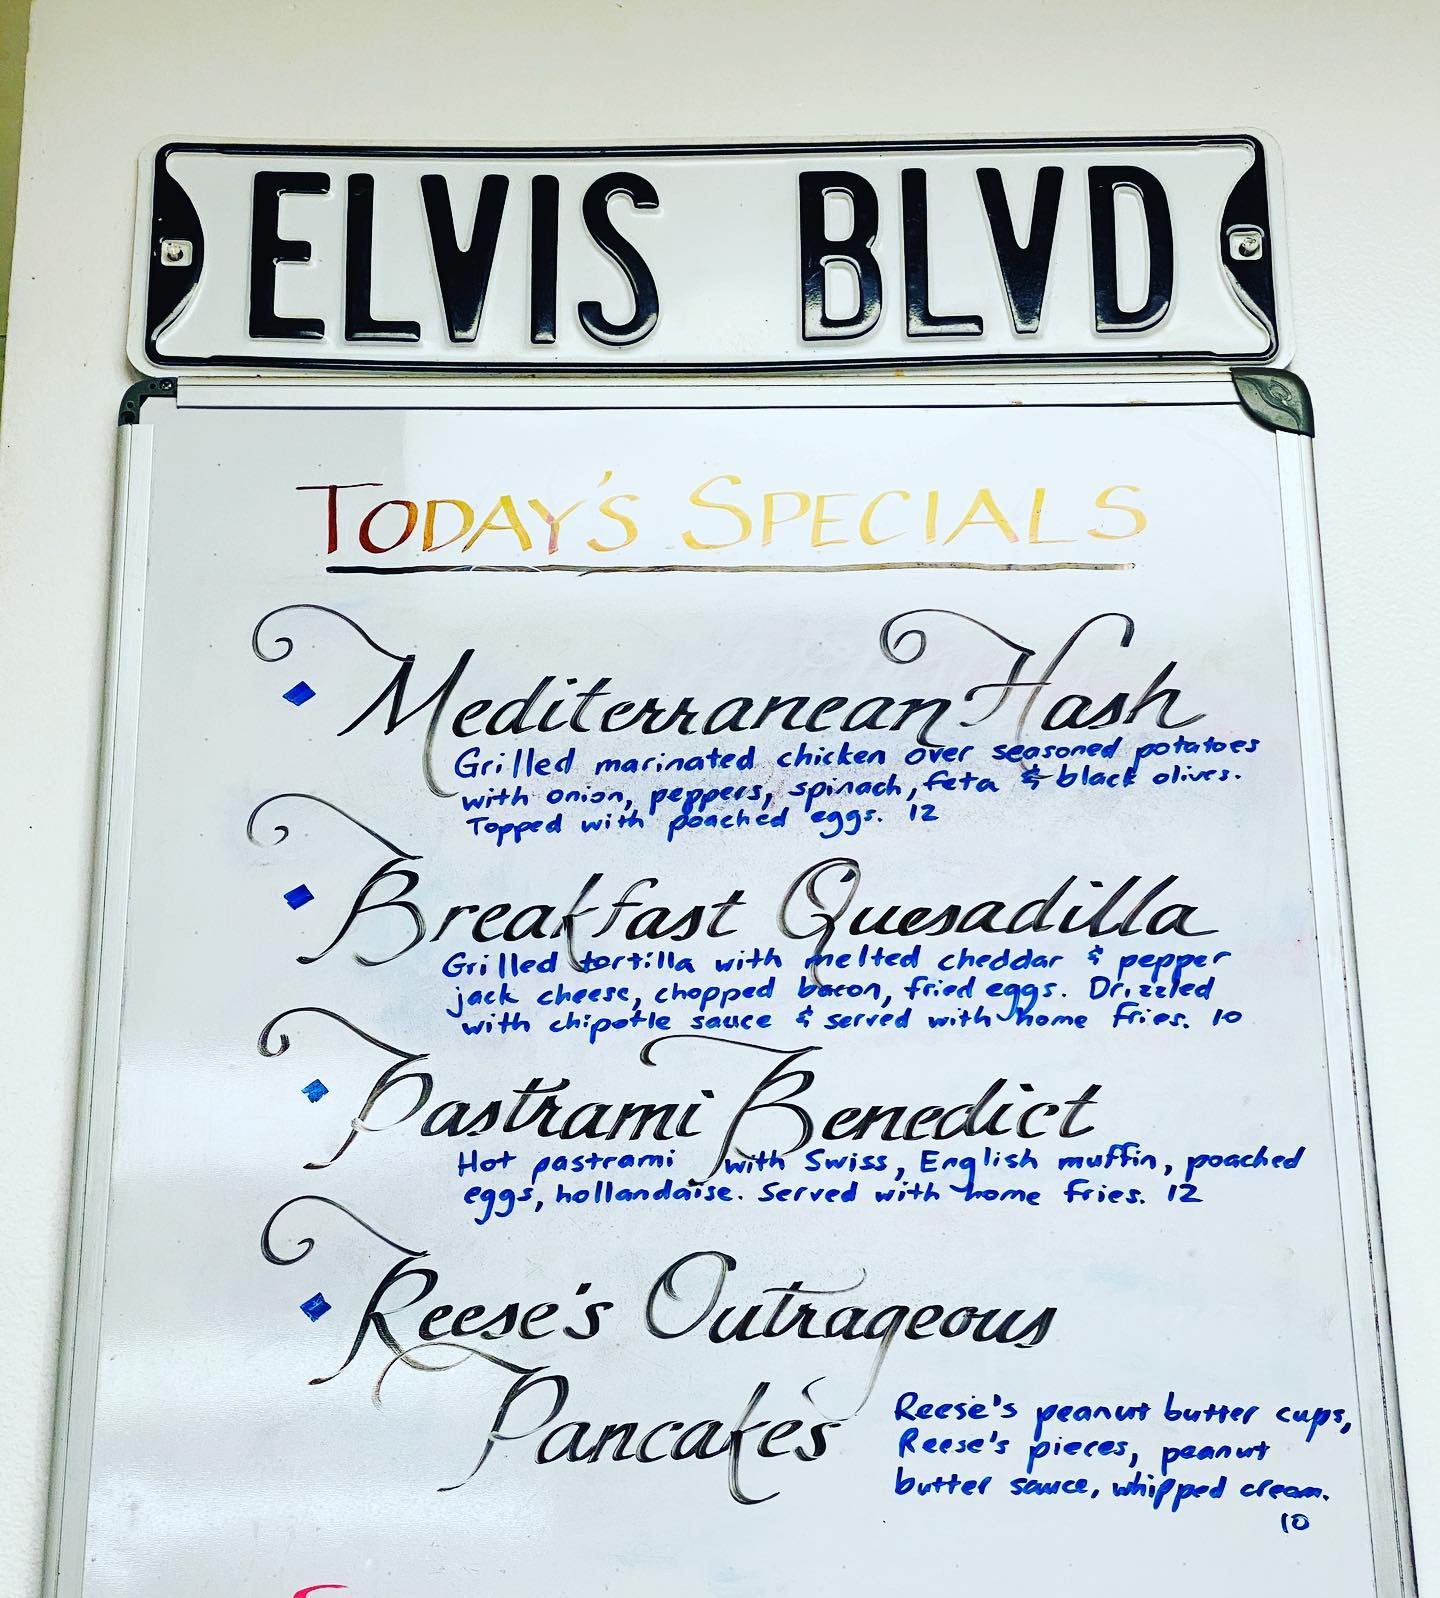 ELVIS BLVD
TODAY'S SPECIALS
Mediterranean Hash
Grilled marinated chicken over seasoned potatoes
with onion, peppers, spinach, feta & black olives.
Topped with poached eggs. 12
Breakfast Quesadilla
Grilled tortilla with melted cheddar & pepper
jack cheese, chopped bacon, fried eggs. Drizzled
with chipotle sauce & served with home fries. 10
Pastrami Benedict
Hot pastrami with Swiss, English muffin, poached
eggs, hollandaise. Served with home fries. 12
Reese's Outrageous
Pancake's
Reese's peanut butter cups,
Reese's pieces, peanut
butter sauce, whipped cream.
10